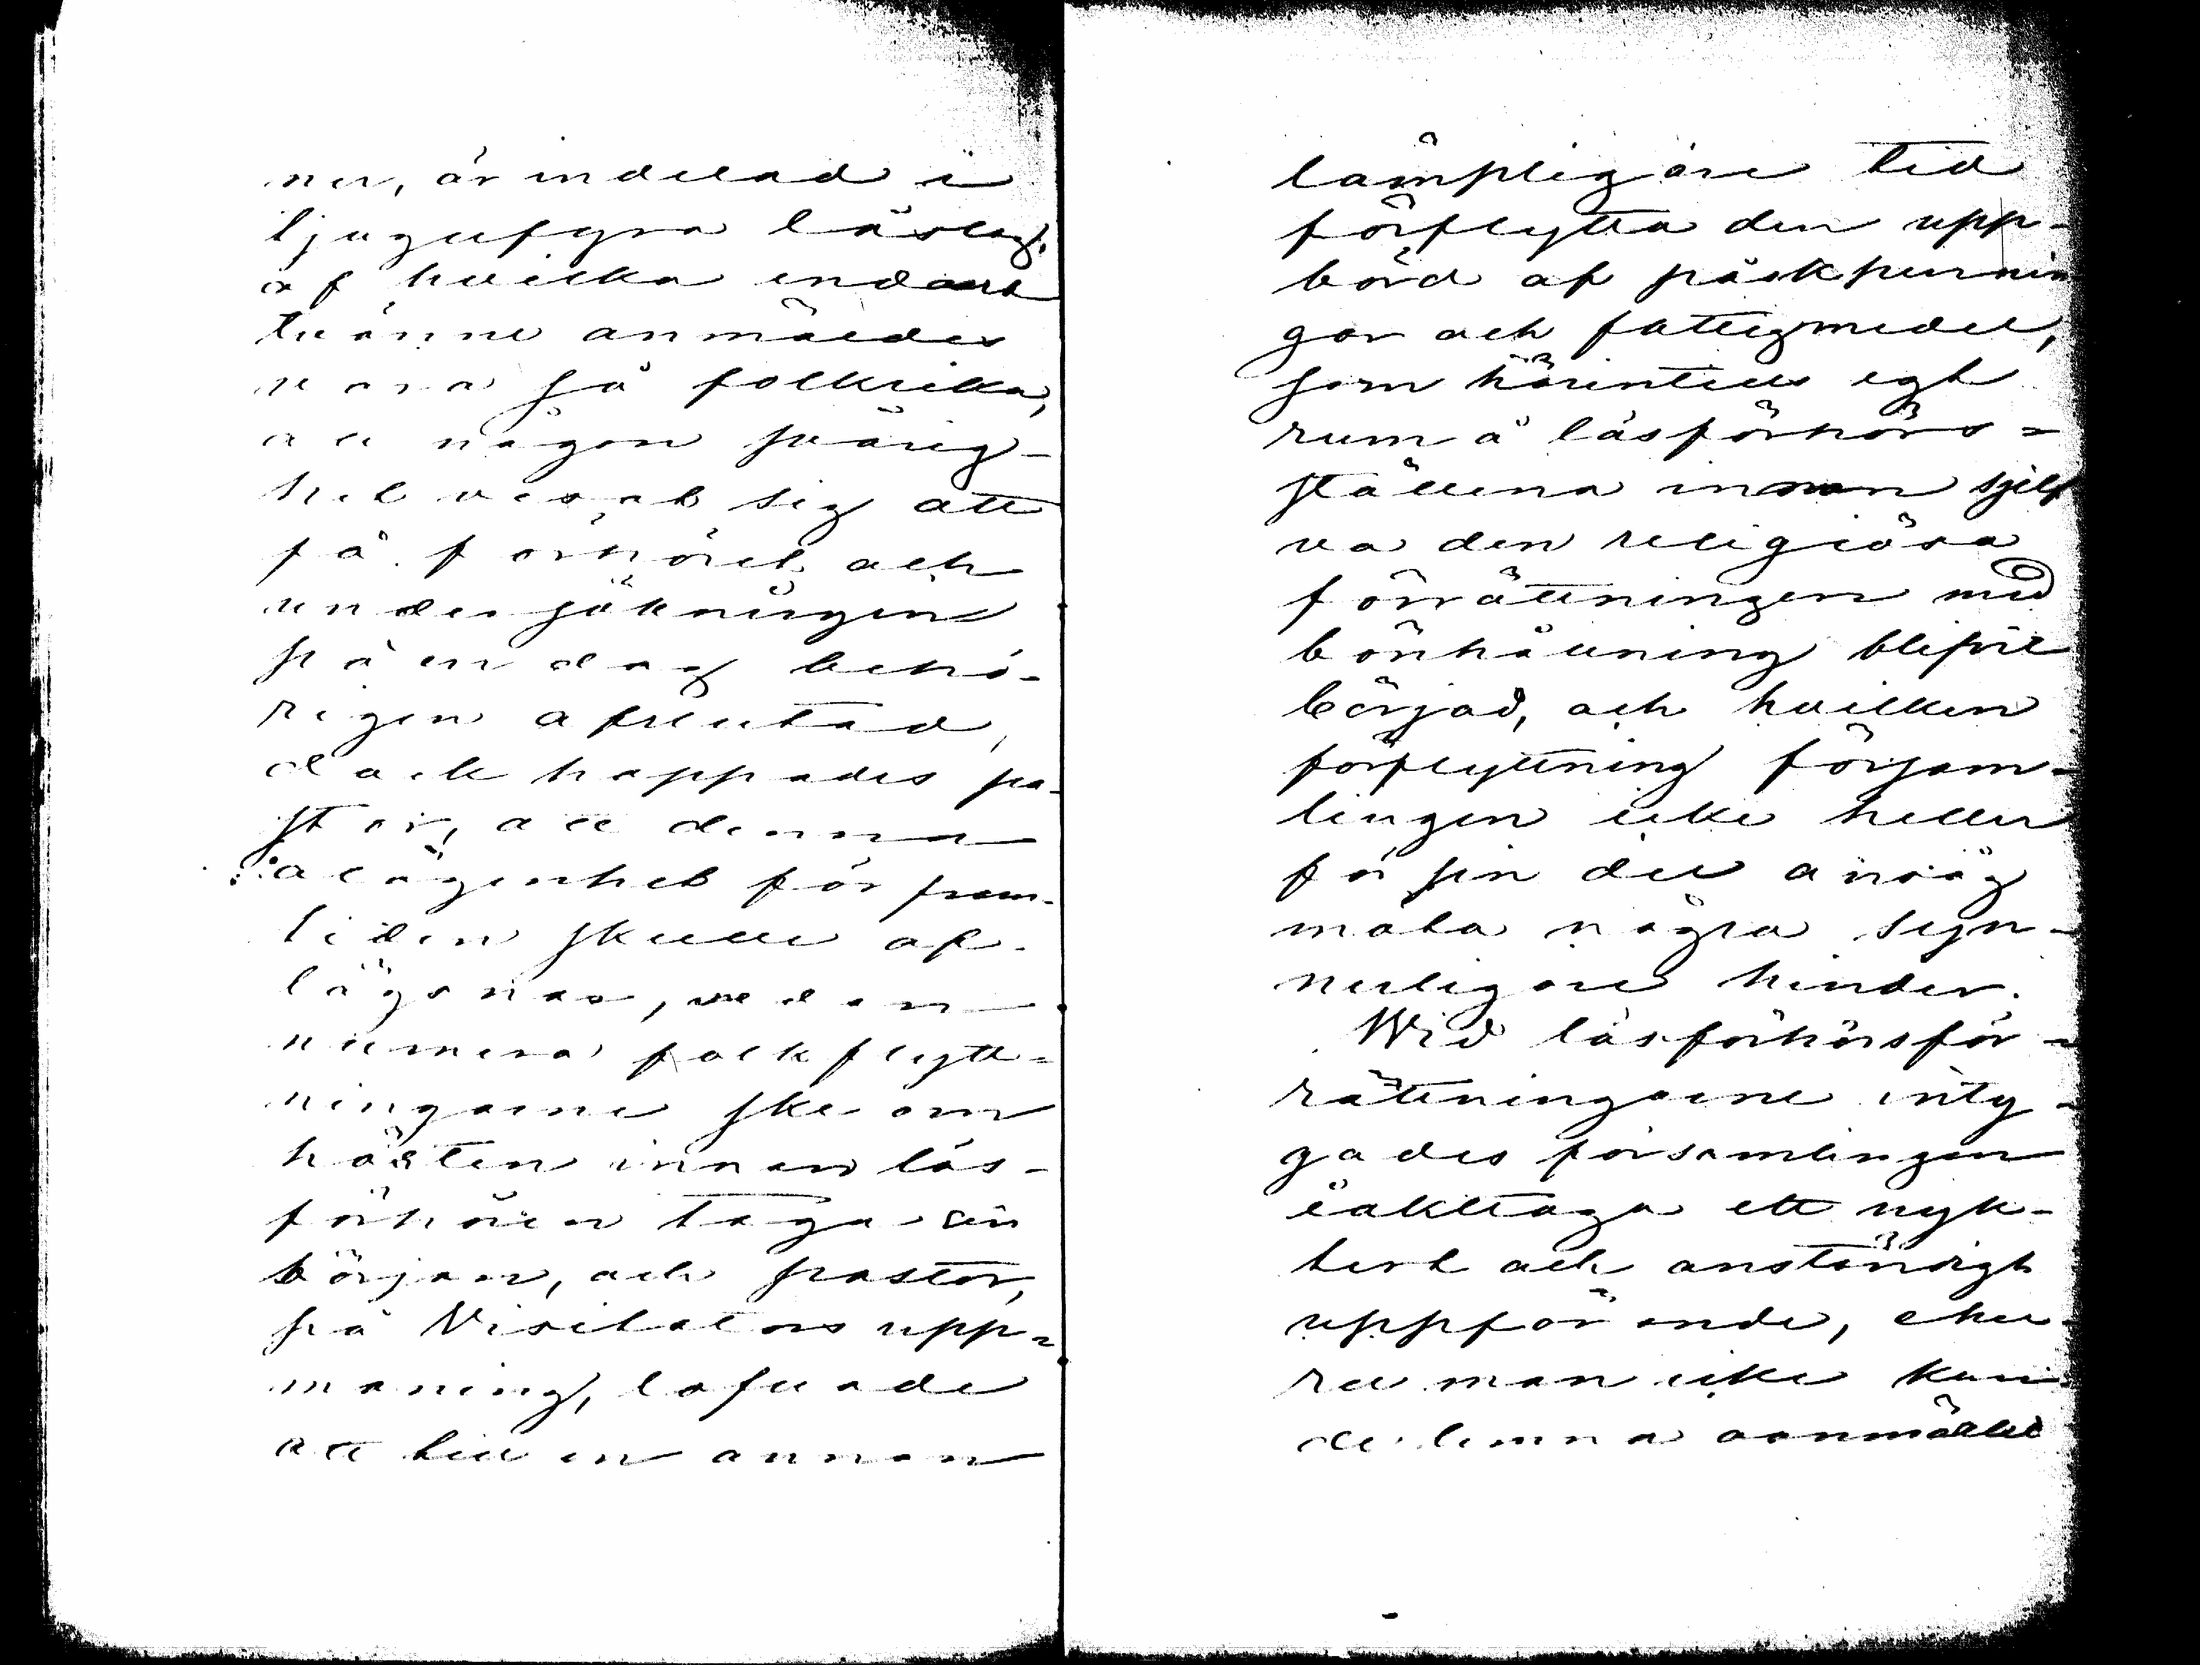 ner, är indelad i
tjugufyra läslag,
af hvilka endast
tvänne anmäldes
vara så folkrika,
att någon svårig-
het visat sig att
få förhöret och
undersökningen
på en dag behö-
rigen afslutad,
dock hoppades pa-
stor, att denna
olägenhet för fram-
tiden skulle af-
lägsnas, sedan
numera folkflytt-
ningarne ske om
hösten innan läs-
förhören taga sin
början, och pastor,
på Visitators upp-
maning, lofvade
att till en annan
lämpligare tid
förflytta den upp-
börd af påskpennin
gar och fattigmedel,
som härintills egt
rum å läsförhörs-
ställena innan sjelf
va den religiösa
förrättningen med
bönhållning blifvit
börjad, och hvilken
förflyttning försam-
lingen icke heller
för sin del ansåg
möta några syn-
nerligare hinder.
Wid läsförhörsför-
rättningarne intyg-
gades församlingen
iakttaga ett nyk-
tert och anständigt
uppförande, ehu-
ru man icke kun-
de lemna oanmäldt